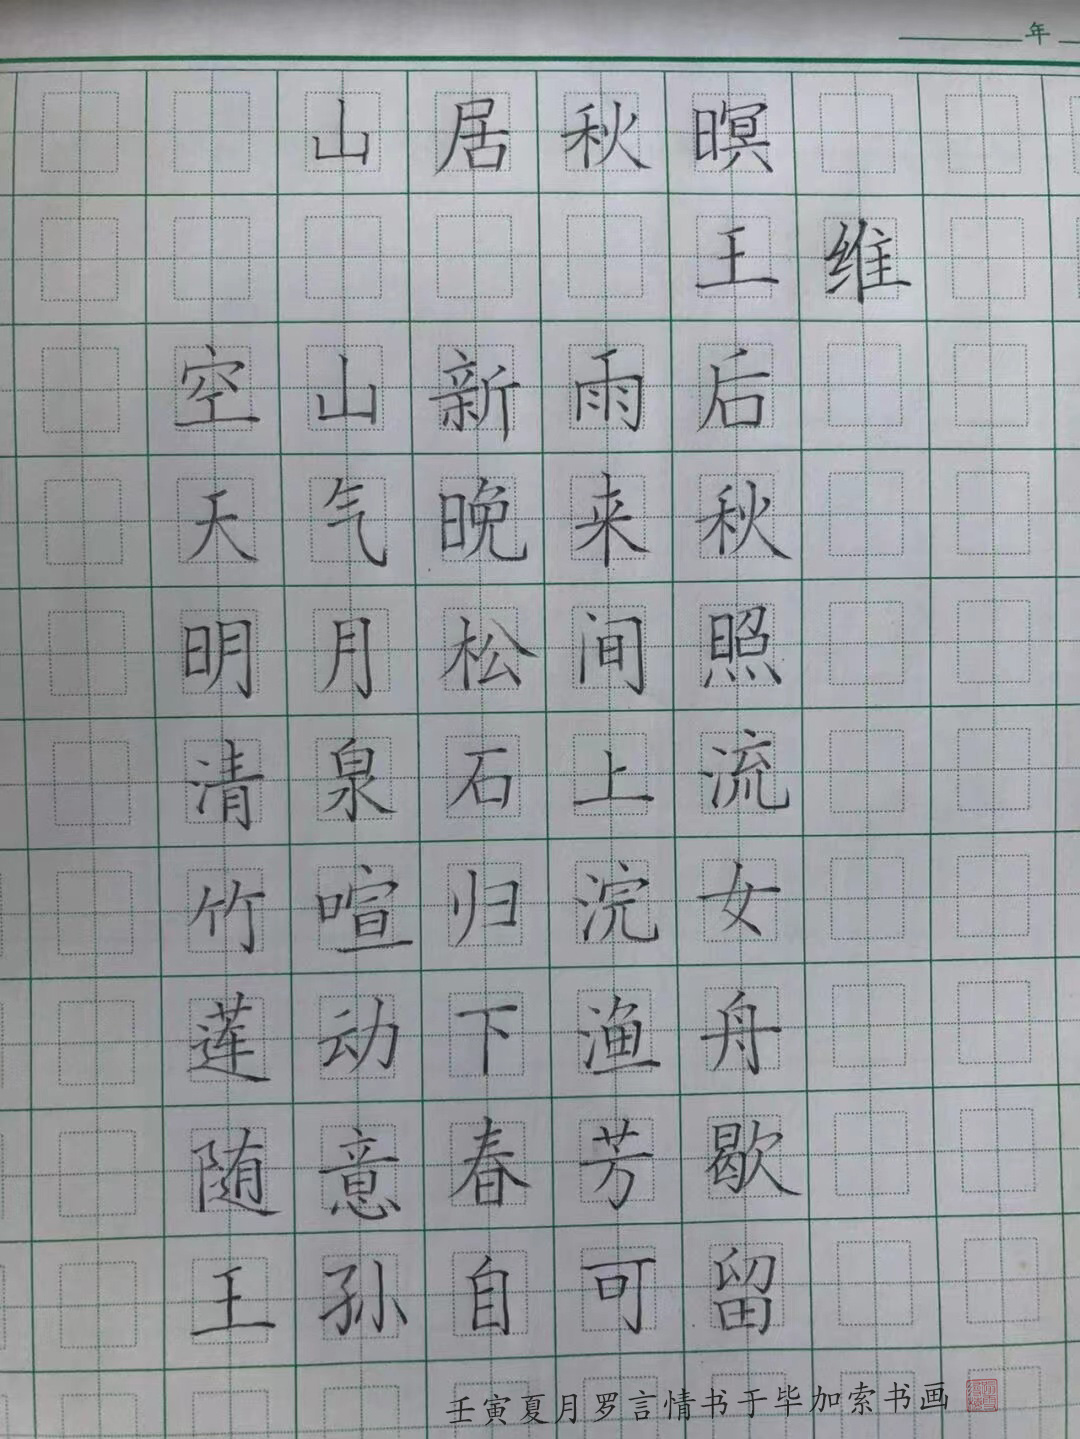 年
山居秋暝
王维
空山新雨后
天气晚来秋
明月松间照
清泉石上流
竹喧归浣女
莲动下渔舟
随意春芳歇
王孙自可留
壬寅夏月罗言情书于毕加索书画